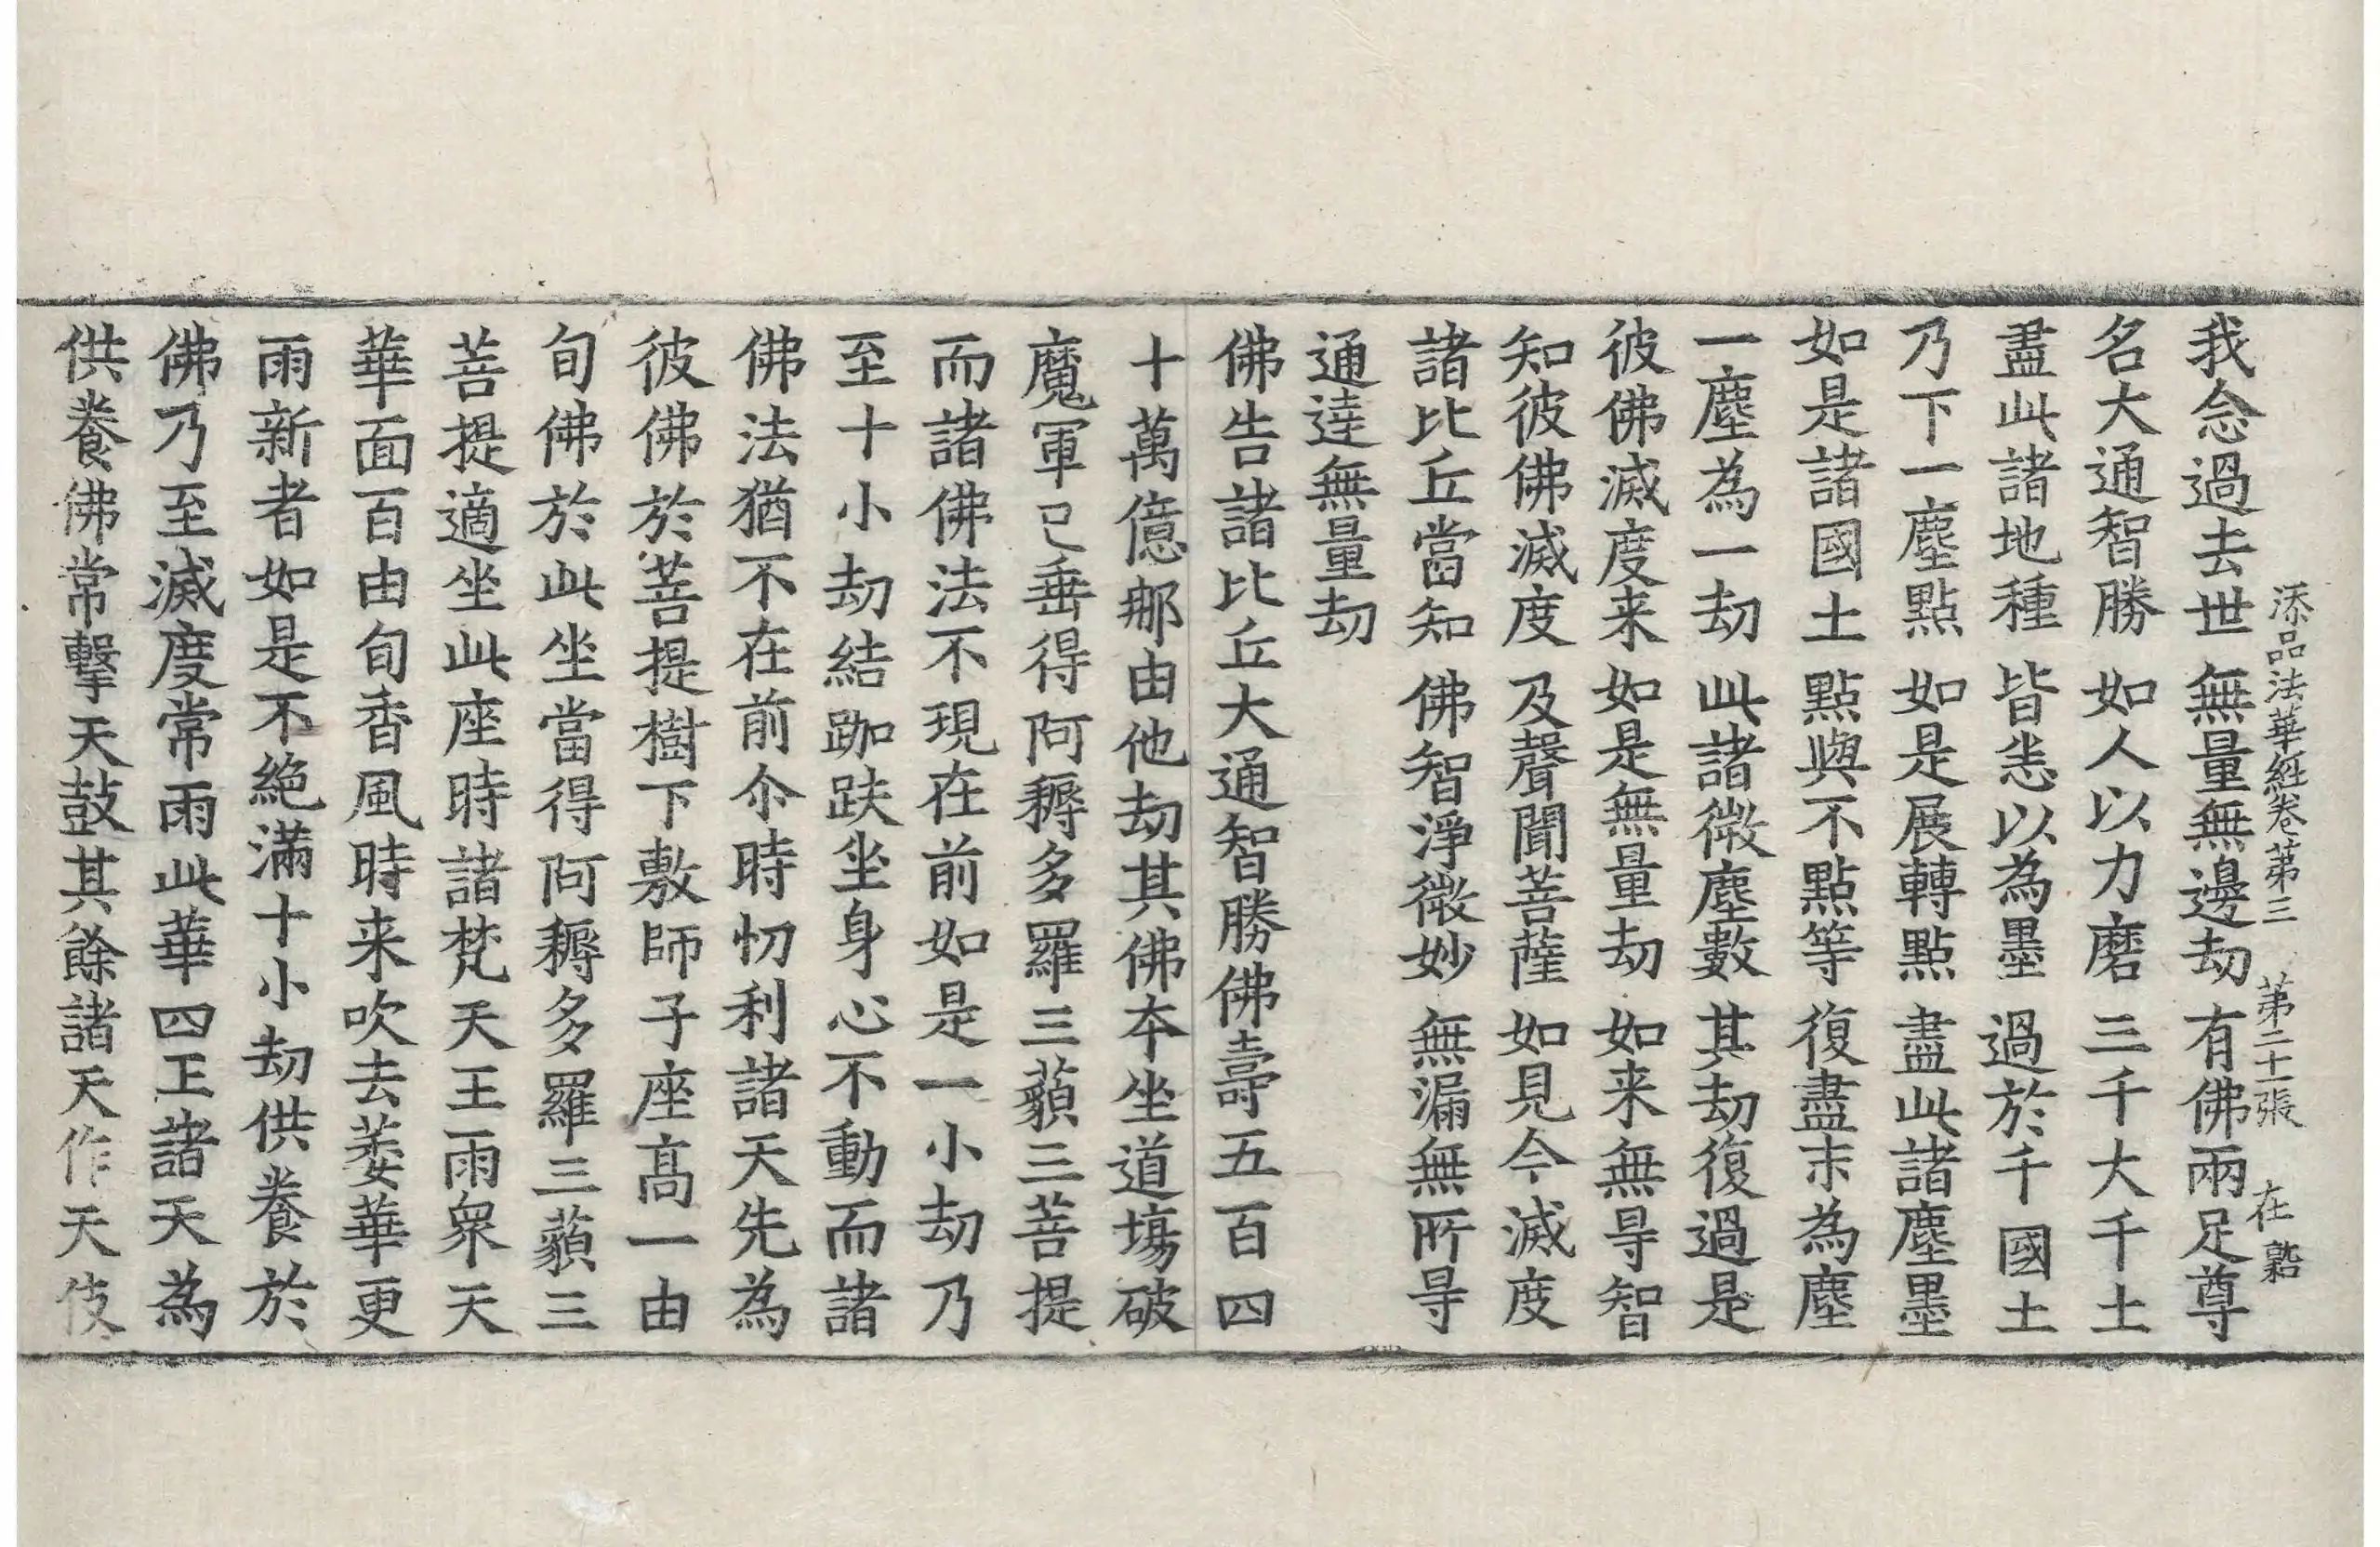 添品法華經卷第三　第二十一張　在
我念過去世　無量無邊劫　有佛兩足尊
名大通智勝　如人以力磨　三千大千土
盡此諸地種　皆悉以為墨　過於千國土
乃下一塵點　如是展轉點　盡此諸塵墨
如是諸國土　點與不點等　復盡末為塵
一塵為一劫　此諸微塵數　其劫復過是
彼佛滅度来　如是無量劫　如来無㝵智
知彼佛滅度　及聲聞菩薩　如見今滅度
諸比丘當知　佛智淨微妙　無漏無所㝵
通達無量劫
佛告諸比丘大通智勝佛壽五百四
十萬億那由他劫其佛夲坐道場破
魔軍已垂得阿耨多羅三藐三菩提
而諸佛法不現在前如是一小劫乃
至十小劫結跏趺坐身心不動而諸
佛法猶不在前尒時忉利諸天先為
彼佛於菩提樹下敷師子座高一由
旬佛於此坐當得阿耨多羅三藐三
菩提適坐此座時諸梵天王雨衆天
華面百由旬香風時来吹去萎華更
雨新者如是不絶滿十小劫供養於
佛乃至滅度常雨此華四王諸天為
供養佛常擊天鼓其餘諸天作天伎